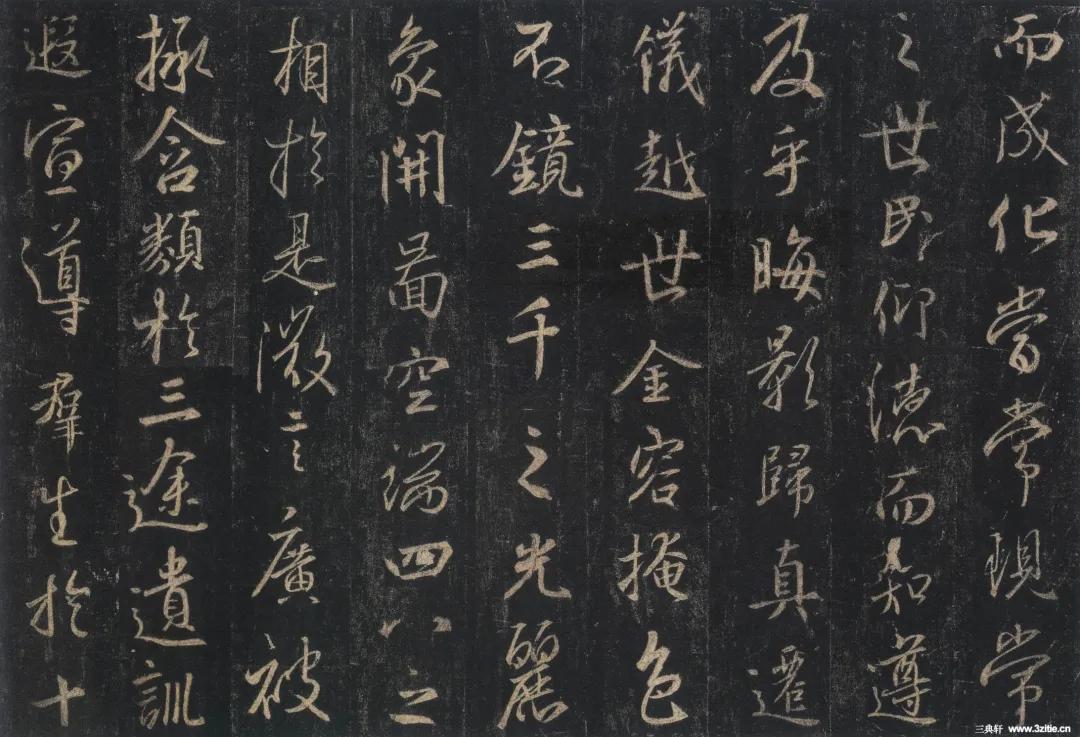 而成化當常現常
之世民仰德而知遵
及乎晦影歸真遷
儀越世金容掩色
不鏡三千之光麗
象開圖空端四八之
相於是微言廣被
拯含類於三途遺訓
遐宣導群生於十
三典轩 www.3zitie.cn